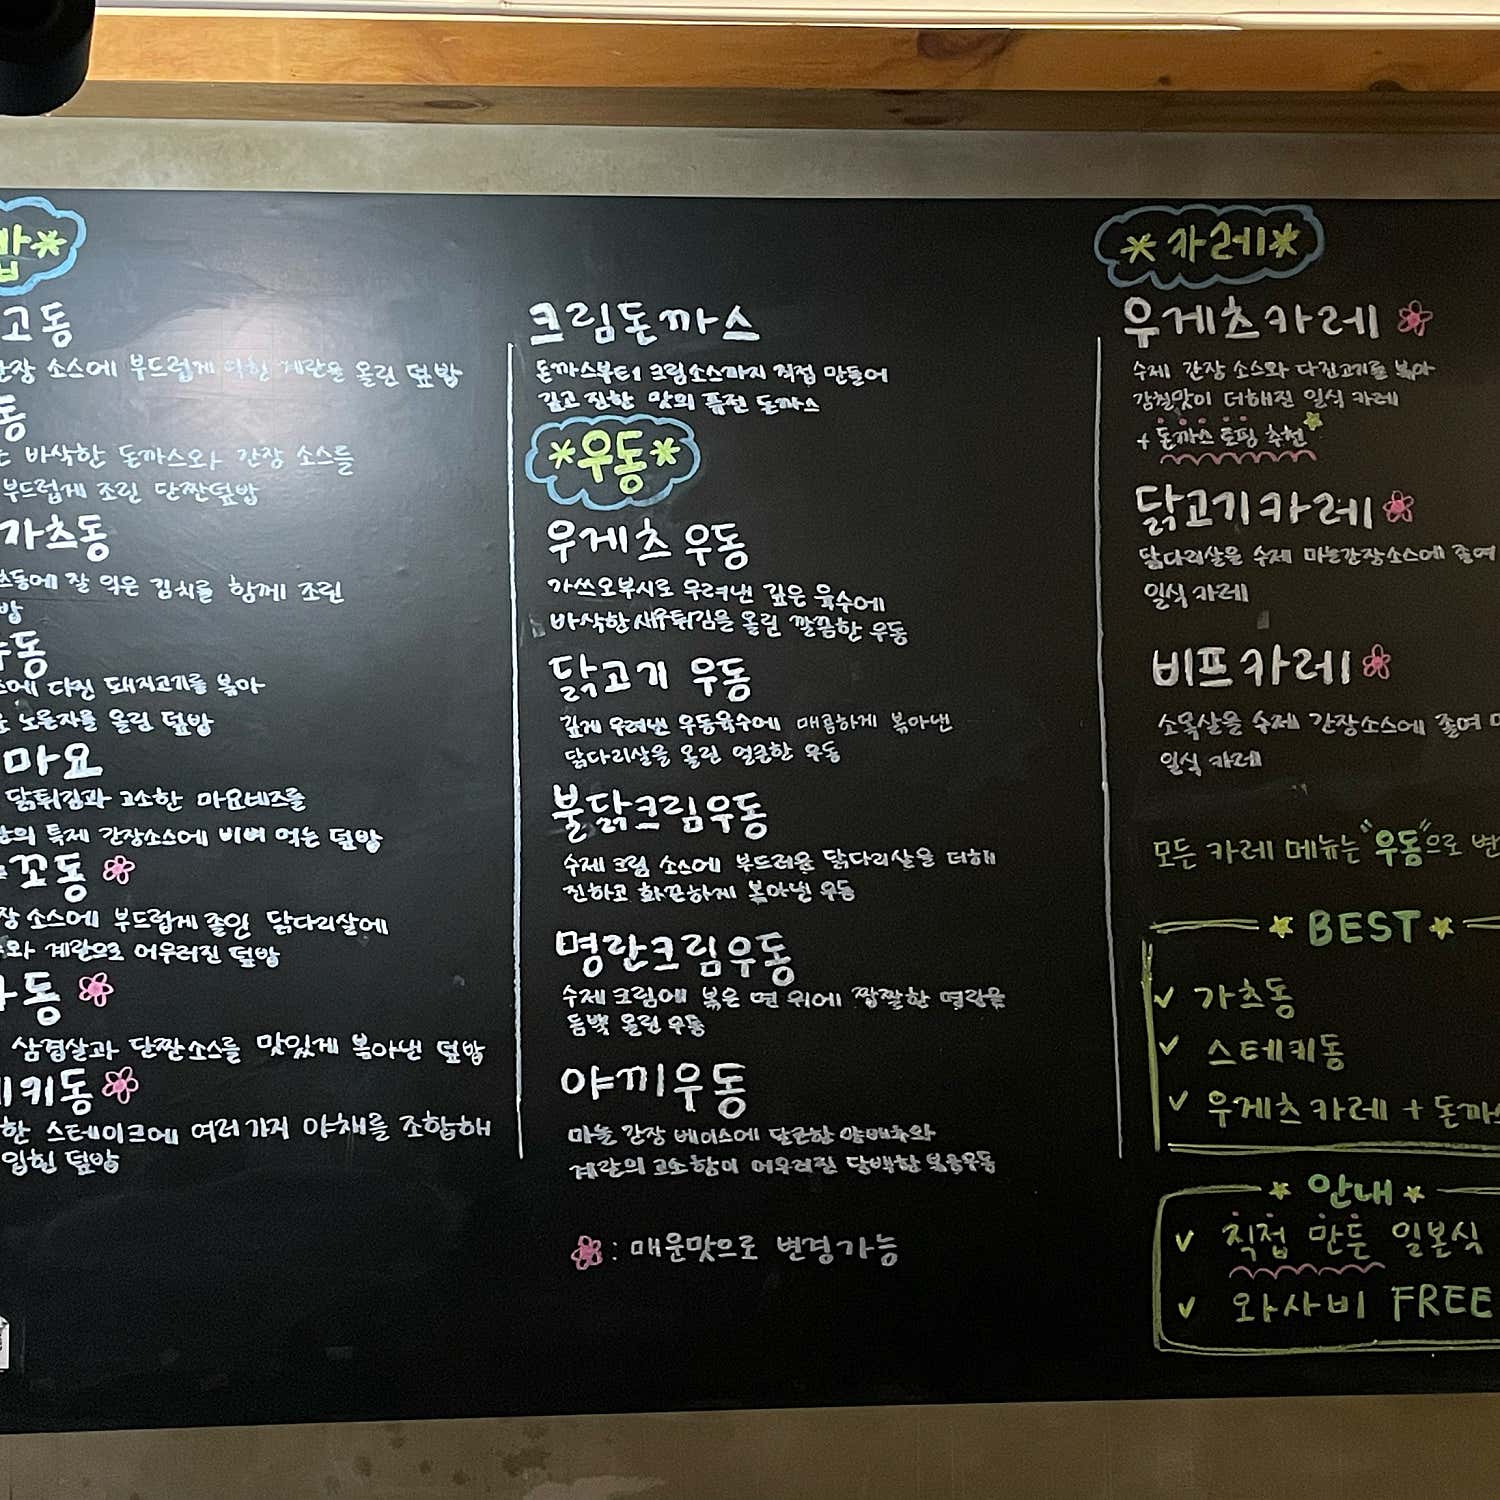 밥*
고동
간장 소스에 부드럽게 익힌 계란을 올린 덮밥
동
바삭한 돈까스와 간장 소스를
부드럽게 조린 단짠덮밥
가츠동
츠동에 잘 익은 김치를 함께 조린
밥
동
소에 다진 돼지고기를 볶아
노른자를 올린 덮밥
마요
닭튀김과 고소한 마요네즈를
특제 간장소스에 비벼 먹는 덮밥
꼬동
장 소스에 부드럽게 졸인 닭다리살에
와 계란으로 어우러진 덮밥
동
삼겹살과 단짠소스를 맛있게 볶아낸 덮밥
키동
한 스테이크에 여러가지 야채를 조합해
입힌 덮밥
크림돈까스
돈까스부터 크림소스까지 직접 만들어
깊고 진한 맛의 퓨전 돈까스
*우동*
우게츠 우동
가쓰오부시로 우려낸 깊은 육수에
바삭한새우튀김을 올린 깔끔한 우동
닭고기 우동
깊게 우려낸 우동육수에 매콤하게 볶아낸
닭다리살을 올린 얼큰한 우동
불닭크림우동
수제 크림 소스에 부드러운 닭다리살을 더해
진하고 화끈하게 볶아낸 우동
명란크림우동
수제 크림에 볶은 면 위에 짭짤한 명란을
듬뿍 올린 우동
야끼우동
마늘 간장 베이스에 달큰한 양배추와
계란의 고소함이 어우러진 담백한 볶음우동
: 매운맛으로 변경가능
*카레*
우게츠카레
수제 간장 소스와 다진고기를 볶아
감칠맛이 더해진 일식 카레
+ 돈까스 토핑 추천
닭고기카레
닭다리살을 수제 마늘간장소스에 졸여
일식 카레
비프카레
소목살을 수제 간장소스에 졸여
일식 카레
모든 카레 메뉴는 "우동"으로 변
BEST
✓ 가츠동
✓ 스테키동
✓ 우게츠 카레 + 돈까스
안내
✓ 직접 만든 일본식
✓ 와사비 FREE